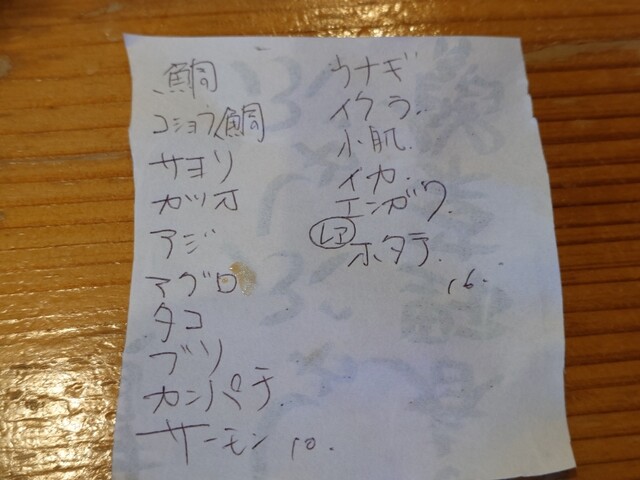 鯛
コショウ鯛
サヨリ
カツオ
アジ
マグロ
タコ
ブリ
カンパチ.
サーモン 10.
ウナギ
イクラ.
小肌.
イカ.
エンガワ.
レア ホタテ.
16.